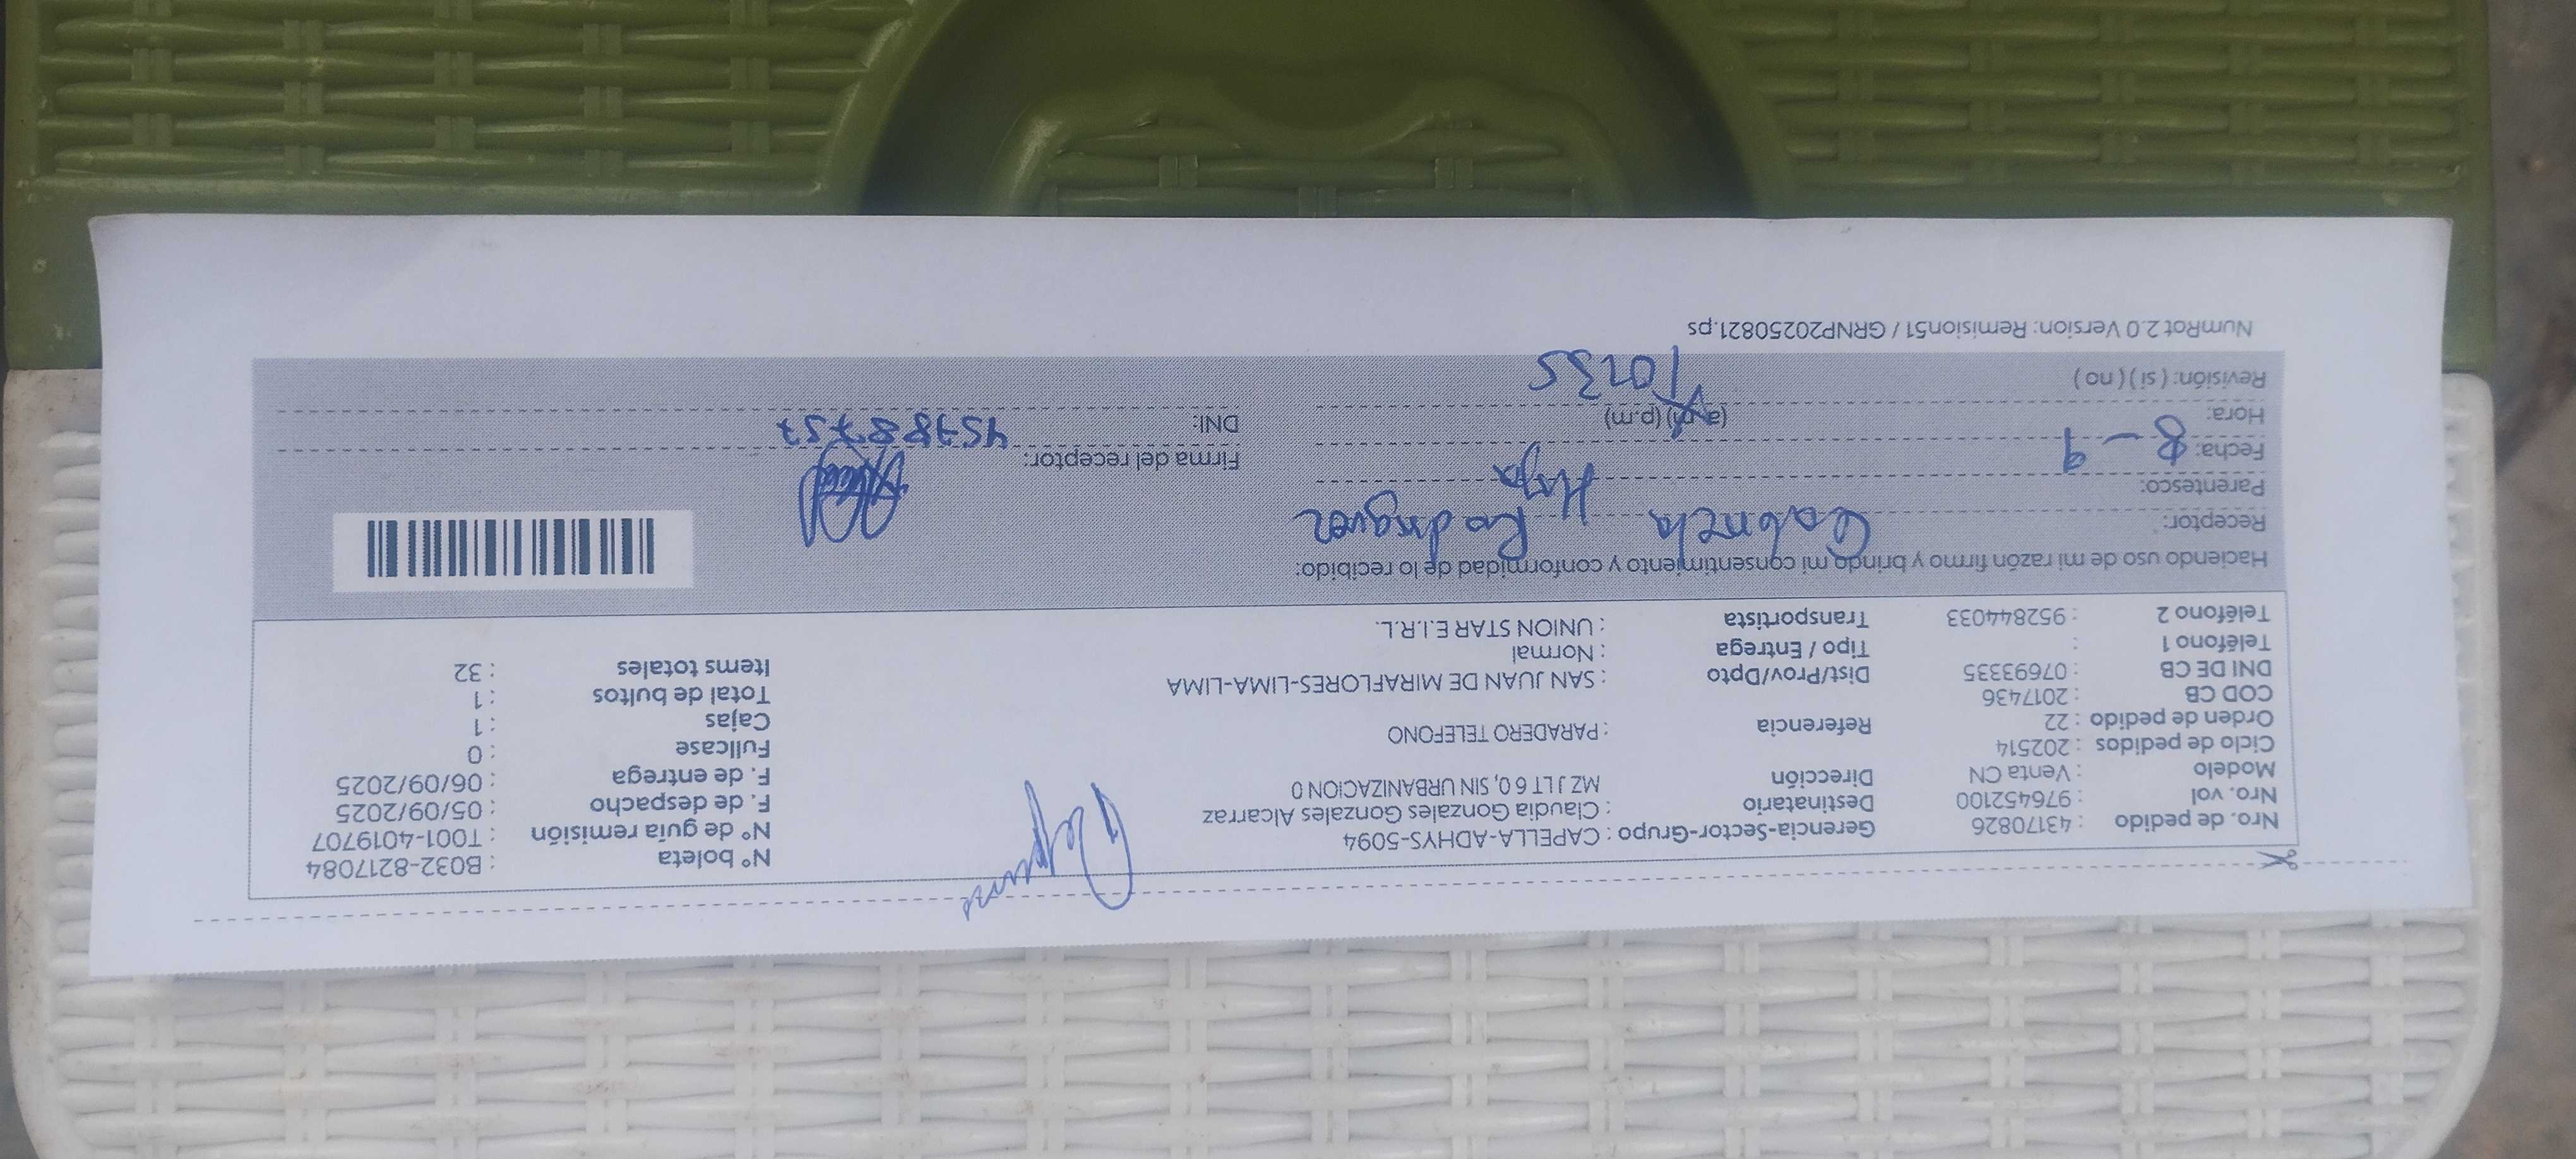 Nro. de pedido : 43170826 Gerencia-Sector-Grupo : CAPELLA-ADHYS-5094 N° boleta : B032-8217084
Nro. vol : 976452100 Destinatario : Claudia Gonzales Gonzales Alcarraz N° de guía remisión : T001-4019707
Modelo : Venta CN Dirección MZ J LT 6 0, SIN URBANIZACION 0 F. de despacho : 05/09/2025
Ciclo de pedidos : 202514 F. de entrega : 06/09/2025
Orden de pedido : 22 Referencia : PARADERO TELEFONO Fullcase : 0
COD CB : 2017436 Cajas : 1
DNI DE CB : 07693335 Dist/Prov/Dpto : SAN JUAN DE MIRAFLORES-LIMA-LIMA Total de bultos : 1
Teléfono 1 : Tipo / Entrega : Normal Items totales : 32
Teléfono 2 : 952844033 Transportista : UNION STAR E.I.R.L.
Haciendo uso de mi razón firmo y brindo mi consentimiento y conformidad de lo recibido:
Receptor: Gabriela Rodriguez
Parentesco: Hija
Fecha: 8-9 Firma del receptor:
Hora: (a.m) (p.m) DNI: 45788757
Revisión: ( si ) ( no )
NumRot 2.0 Version: Remision51 / GRNP20250821.ps